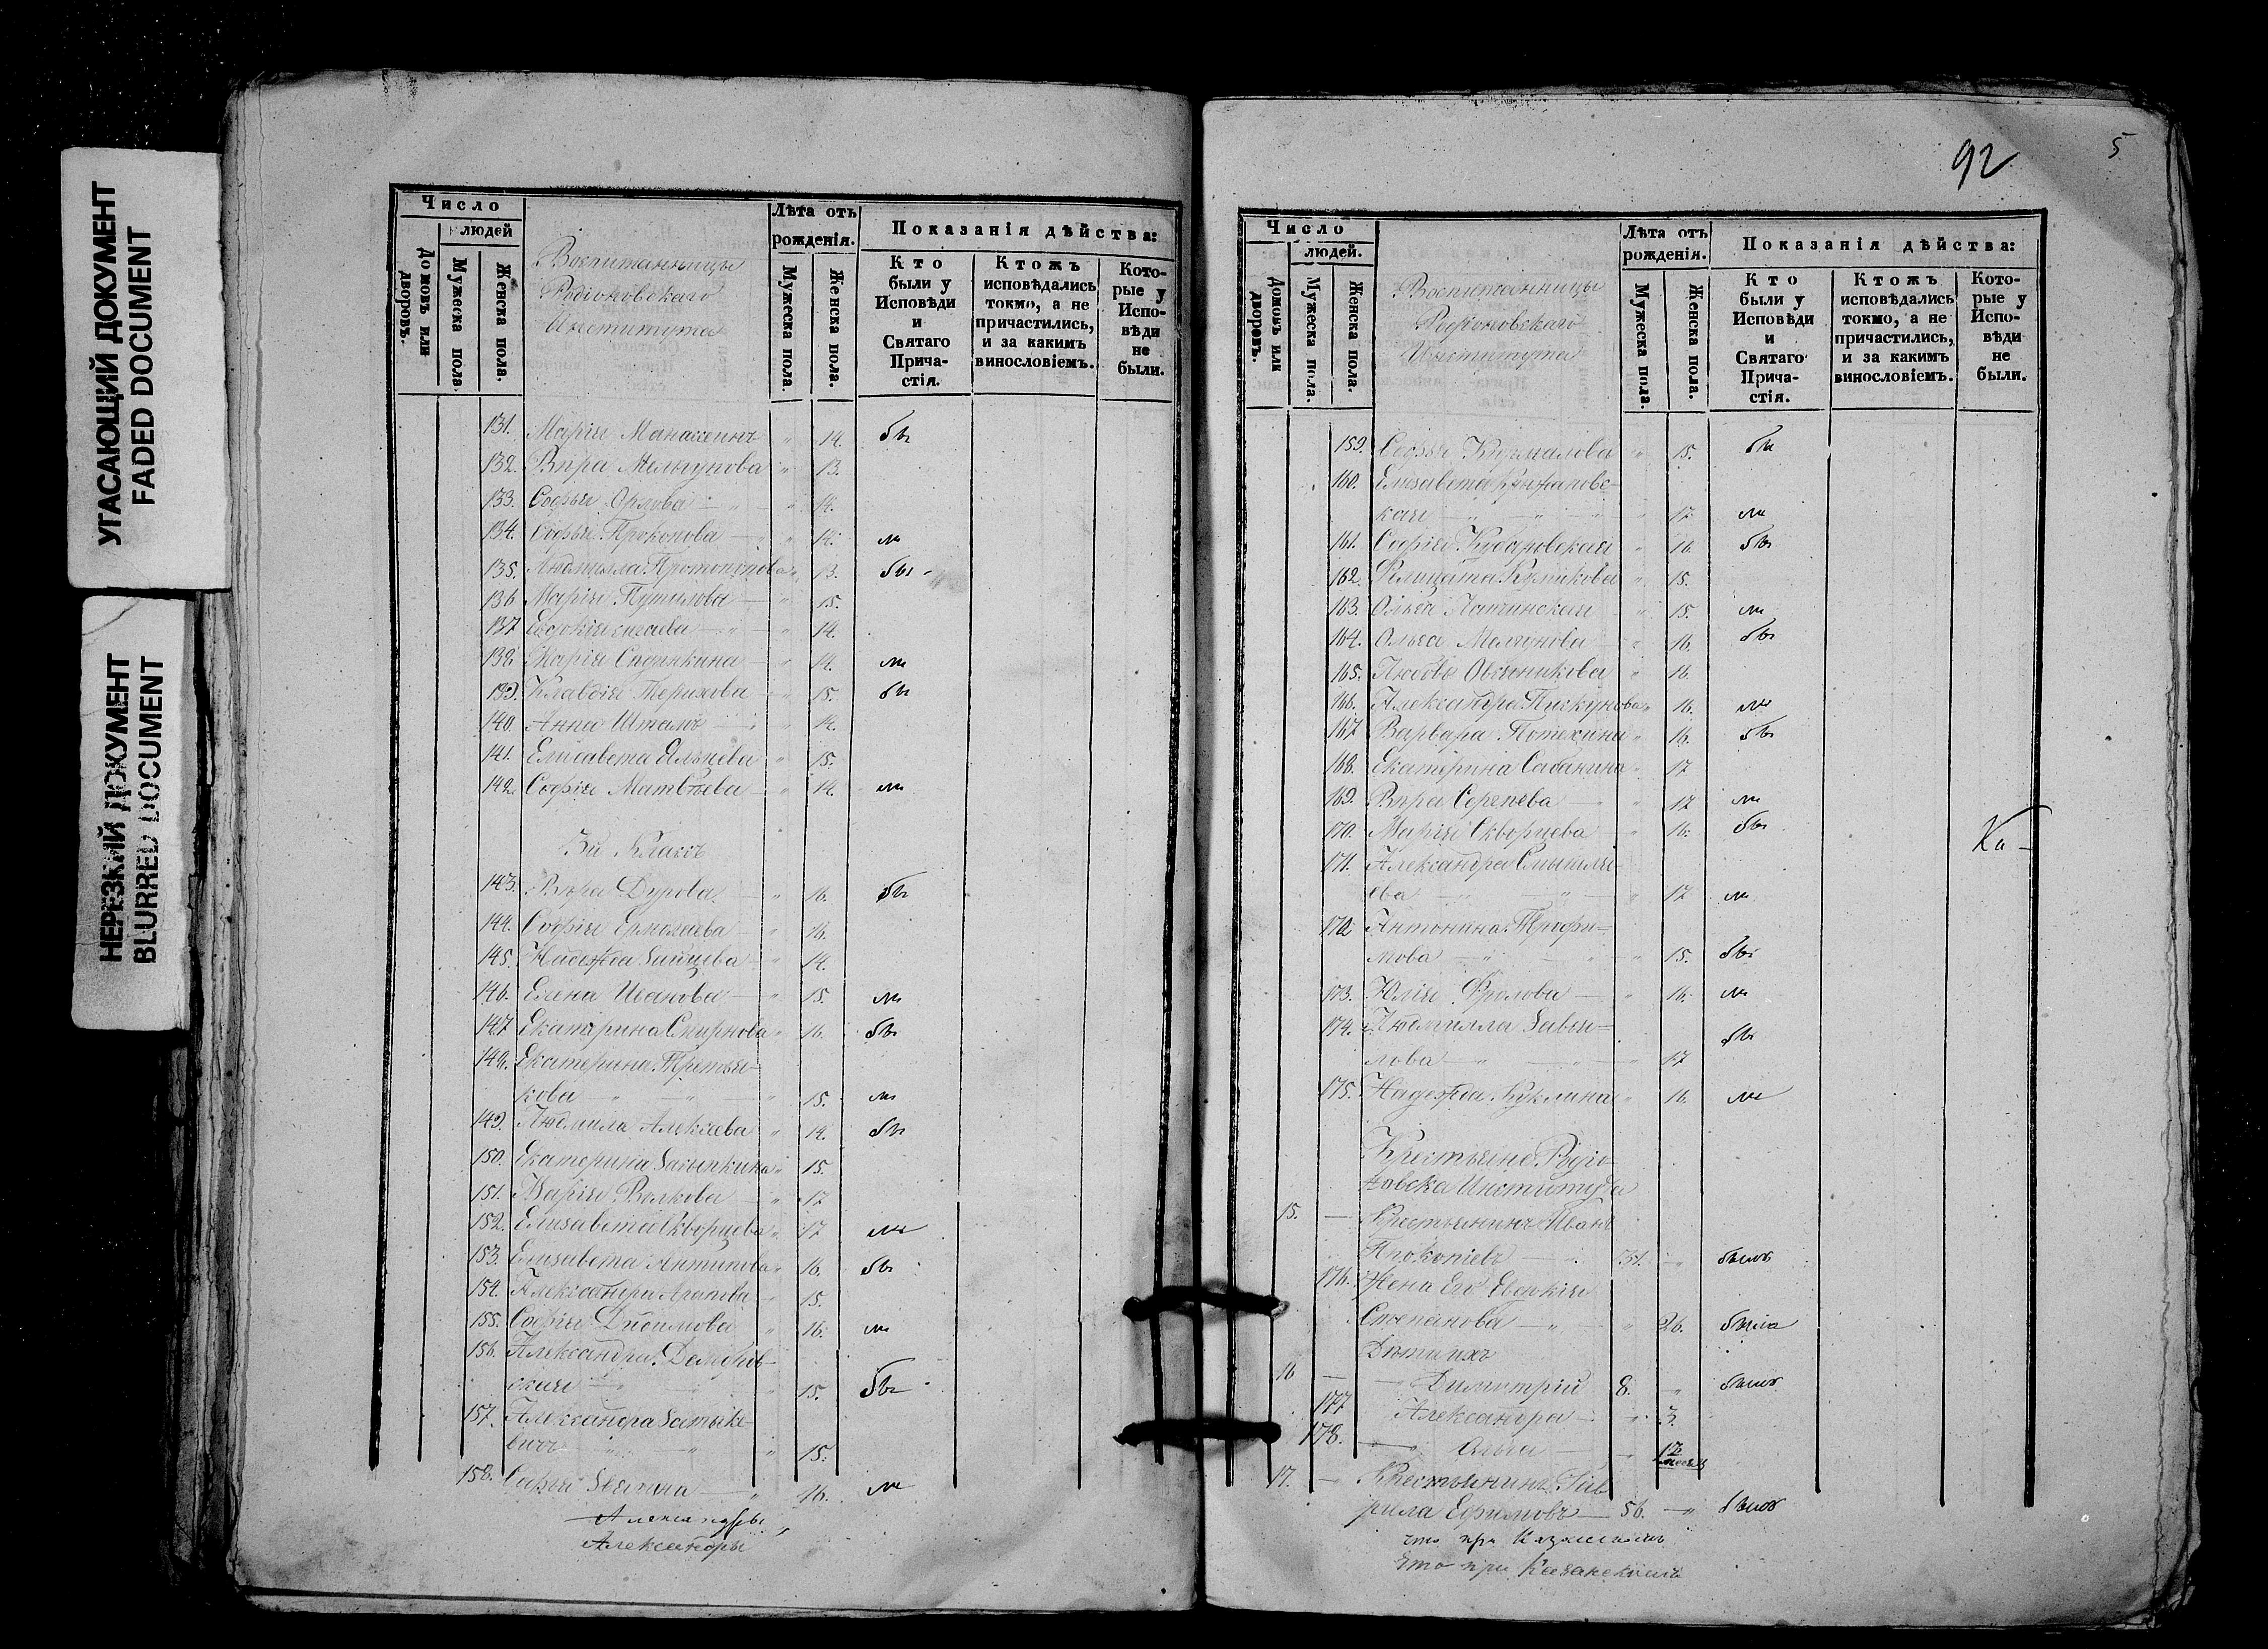 УГАСАЮЩИЙ ДОКУМЕНТ
FADED DOCUMENT
НЕРЕЗКИЙ ДОКУМЕНТ
BLURRED DOCUMENT
Число
людей
Домовъ или дворовъ.
Мужеска пола.
Женска пола.
Воспитанницы
Родіоновскаго
Института
Лѣта отъ рожденія.
Мужеска пола.
Женска пола.
Показанія дѣйства:
Кто были у Исповѣди и Святаго Причастія.
Ктожъ исповѣдались токмо, а не причастились, и за какимъ винословіемъ.
Которые у Исповѣди не были.
131. Марія Манасеинъ " 14. бы
132. Вѣра Мельгунова " 13.
133. Софья Орлова " 14.
134. Софья Прокопова " 14. ли
135. Людмилла Протопопова " 13. бы
136 Марія Путилова " 15.
137 Евдокія 14.
138 Марія " 14. ли
139. Клавдія Терихова " 15. бы
140. Анна Шталь " 14.
141. Елисавета " 15.
142. Софія Матвѣева " 14. ли
143. Вѣра Дурова " 16. бы
144. Софія Ермолаева " 16.
145. Надежда Зайцева " 14.
146. Елена Иванова " 15. ли
147 Екатерина Смирнова " 16. бы
148. Екатерина Третья-
кова " 15. ли
149. Людмила Алексѣева " 14. бы
150. Екатерина Засыпкина " 15.
151. Марія Волкова " 17
152. Елизавета Скворцева " 17 ли
153. Елизавета Антипова " 16. бы
154. Александра Агапова 15.
155. Софія " 16. ли
156. Александра
ская " 15. бы
157. Александра
вичъ " 15.
158. Софія " 16. ли
Александры
Александры
92
5
Число
людей.
Домовъ или дворовъ.
Мужеска пола.
Женска пола.
Воспитанницы
Родіоновскаго
Института
Лѣта отъ рожденія.
Мужеска пола.
Женска пола.
Показанія дѣйства:
Кто были у Исповѣди и Святаго Причастія.
Ктожъ исповѣдались токмо, а не причастились, и за какимъ винословіемъ.
Которые у Исповѣди не были.
159. Софья " 15. бы
160. Елизавета Крыжановс-
кая " 17 ли
161. Софія " 16. бы
162. Куликова " 15.
163. Ольга " 15. ли
164. Ольга Мельгунова " 16. бы
165. Любовь Овсяникова " 16
166. Александра Пискунова " 16. ли
167 Варвара Потехина " 16. бы
168. Екатерина Сабанина " 17
169. Вѣра Сергѣева " 17 ли
170. Марія Скворцева " 16. бы
Ка-
171. Александра Смышля-
ева " 17 ли
172 Антонина Трофи-
мова " 15. бы
173. Юлія Фролова " 16. ли
174. Людмилла Завья-
лова " 17 бы
175. Надежда Куклина " 16. ли
Крестьяне Родіо-
новска Института
15. — Крестьянинъ Иванъ
Прокопіевъ 31. " былъ
176. Жена Его Евдокія
Степанова " 26. была
Дѣти ихъ
16 — Димитрій 8. " былъ
177 Александра " 3.
178. Ольга
17. — Крестьянинъ Гав
рила Ефимовъ 56. " былъ
что при Казанскомъ
Что при Казанскомъ